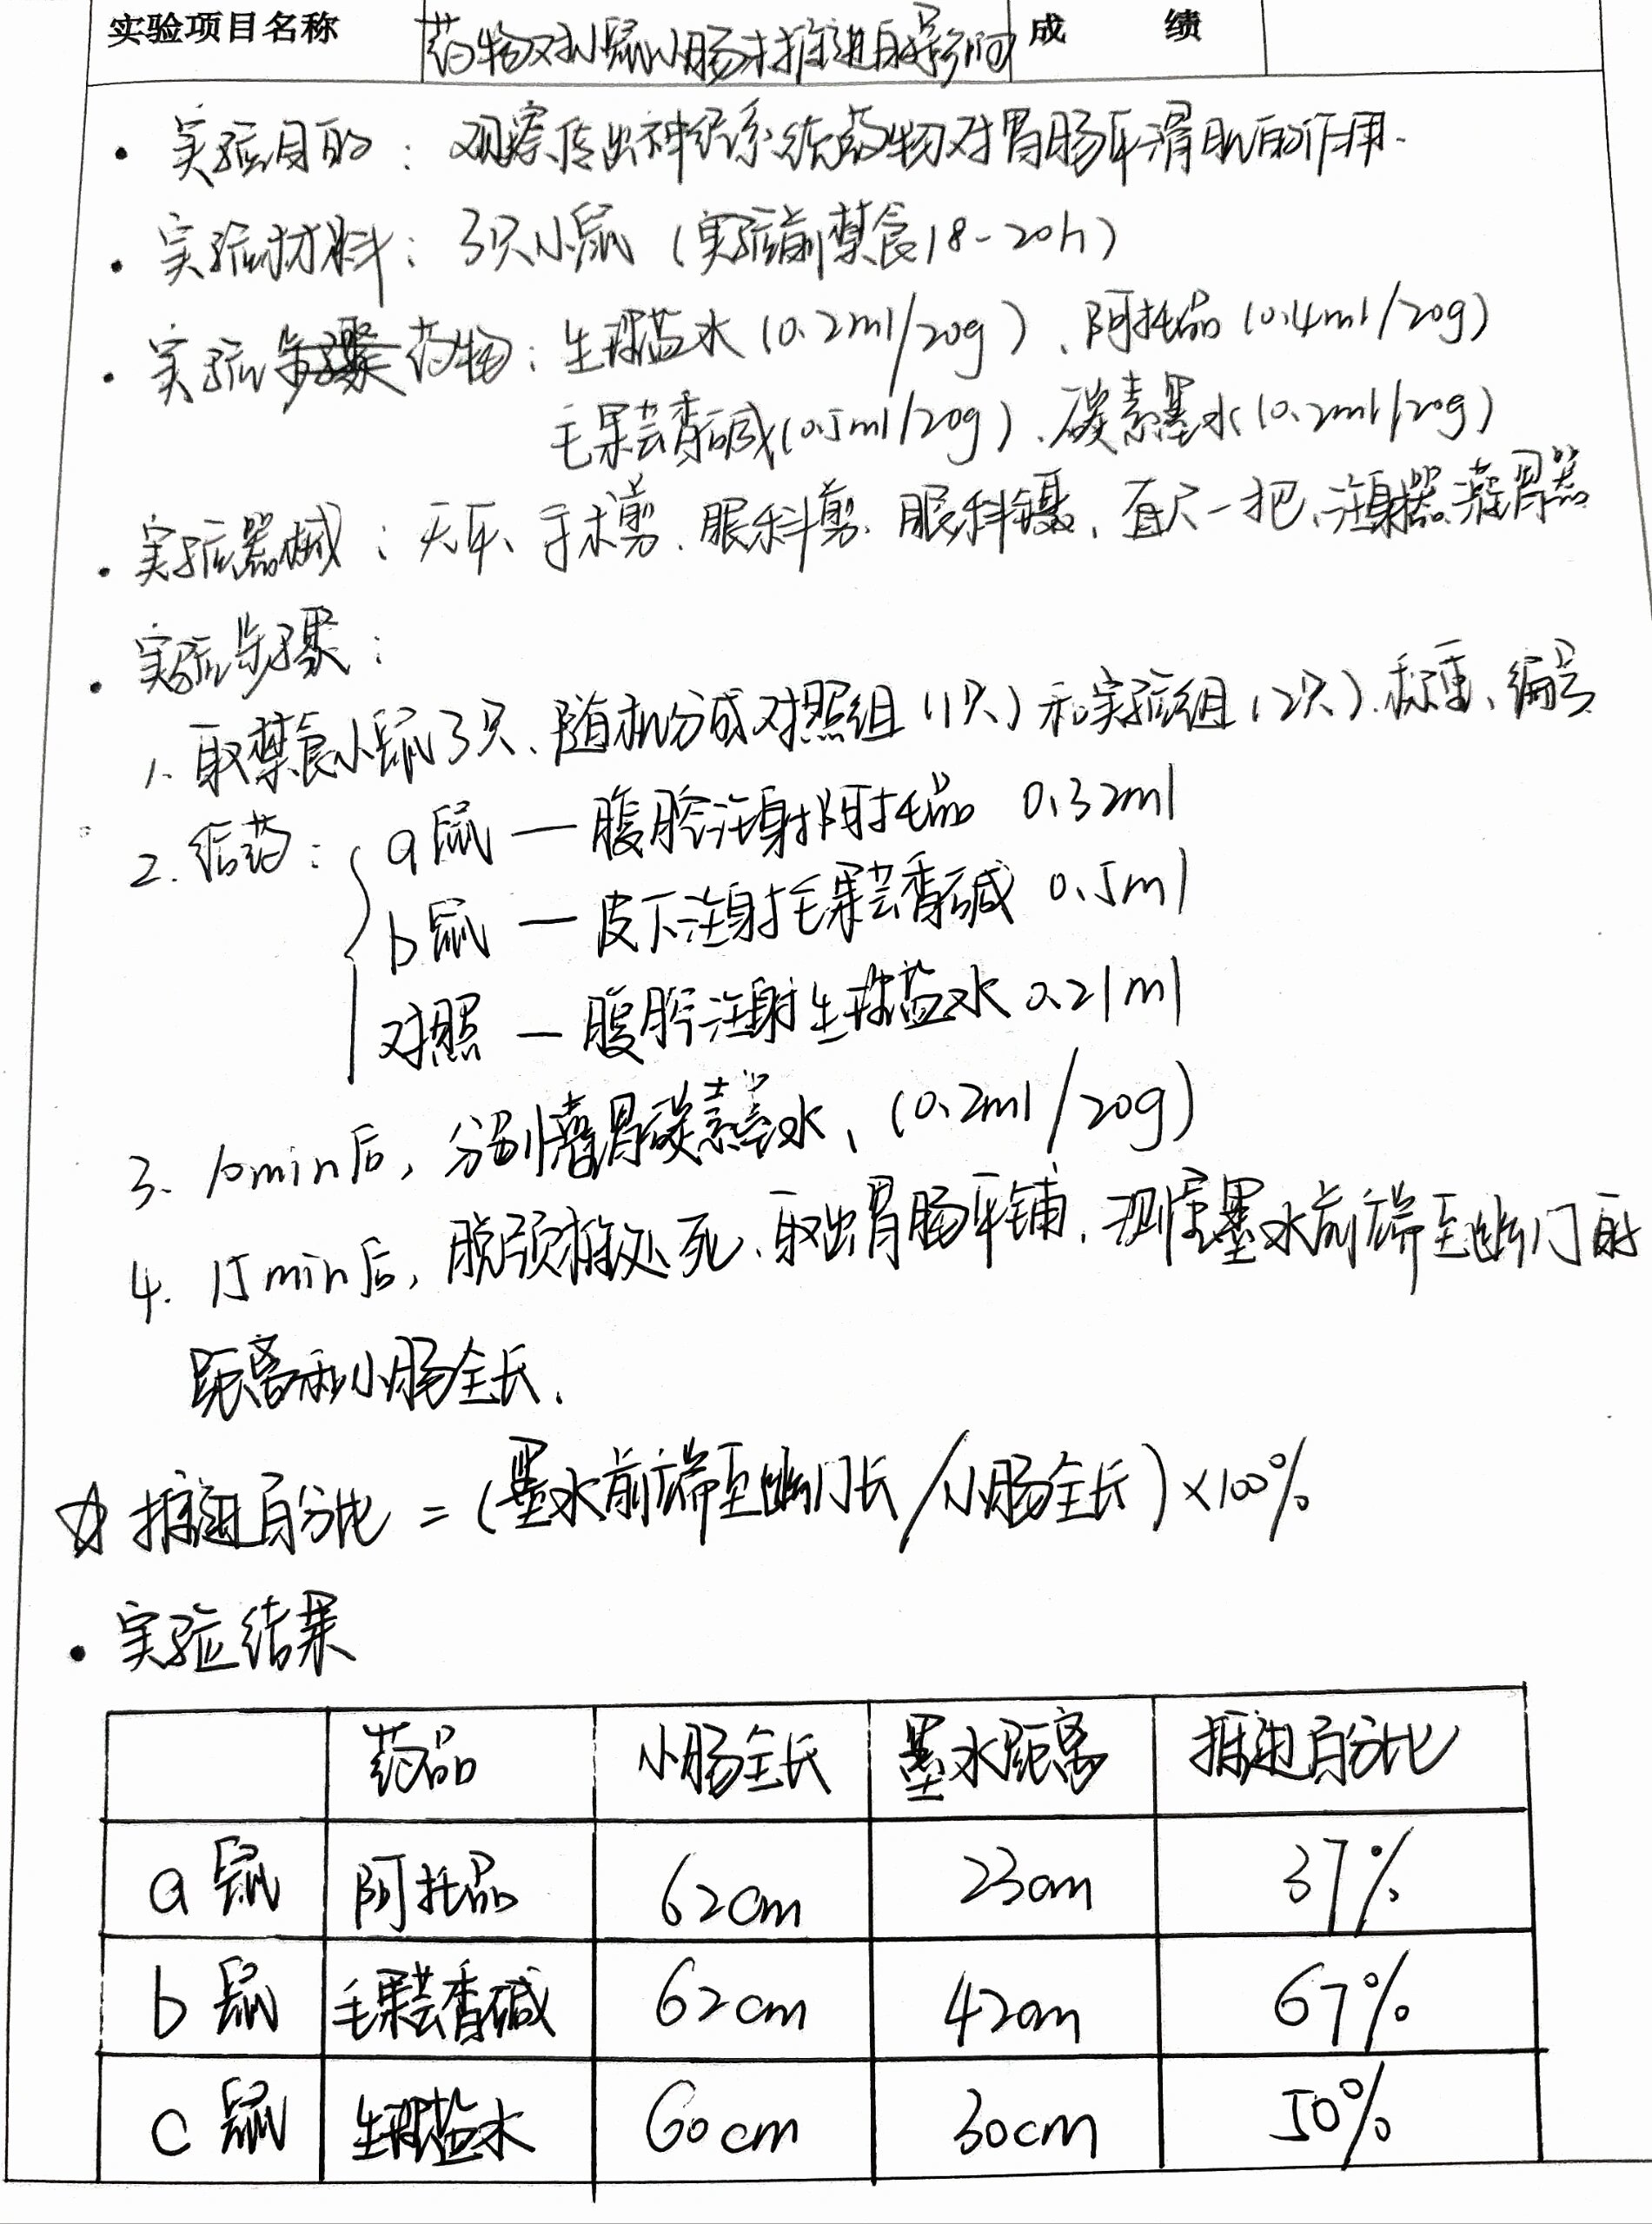 实验项目名称 药物对小鼠小肠推进的影响 成 绩
· 实验目的：观察传出神经系统药物对胃肠平滑肌的作用.
· 实验材料：3只小鼠（实验前禁食18-20h）
· 实验步骤药物：生理盐水（0.2ml/20g）、阿托品（0.4ml/20g）
毛果芸香碱（0.5ml/20g）、碳素墨水（0.2ml/20g）
· 实验器械：天平、手术剪、眼科剪、眼科镊、直尺一把、注射器、灌胃器
· 实验步骤：
1. 取禁食小鼠3只、随机分成对照组（1只）和实验组（2只）.称重、编号
2. 给药： a鼠 — 腹腔注射阿托品 0.32ml
b鼠 — 皮下注射毛果芸香碱 0.5ml
对照 — 腹腔注射生理盐水 0.21ml
3. 10min后，分别灌胃碳素墨水、（0.2ml/20g）
4. 15min后，脱颈椎处死、取出胃肠平铺、测量墨水前端至幽门的
距离和小肠全长.
☆ 推进百分比 =（墨水前端至幽门长/小肠全长）×100%
· 实验结果
药品 小肠全长 墨水距离 推进百分比
a鼠 阿托品 62cm 23cm 37%
b鼠 毛果芸香碱 62cm 42cm 67%
c鼠 生理盐水 60cm 30cm 50%